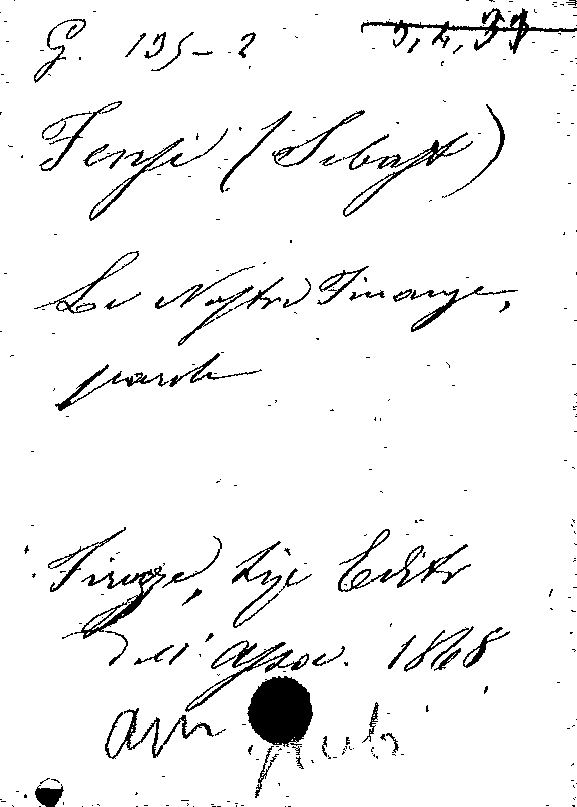 G. 135-2 3,4,33
Fenzi (Sebast)
Le Nostre Finanze,
parole
Firenze, Tip. Editr
dell' Assoc. 1868